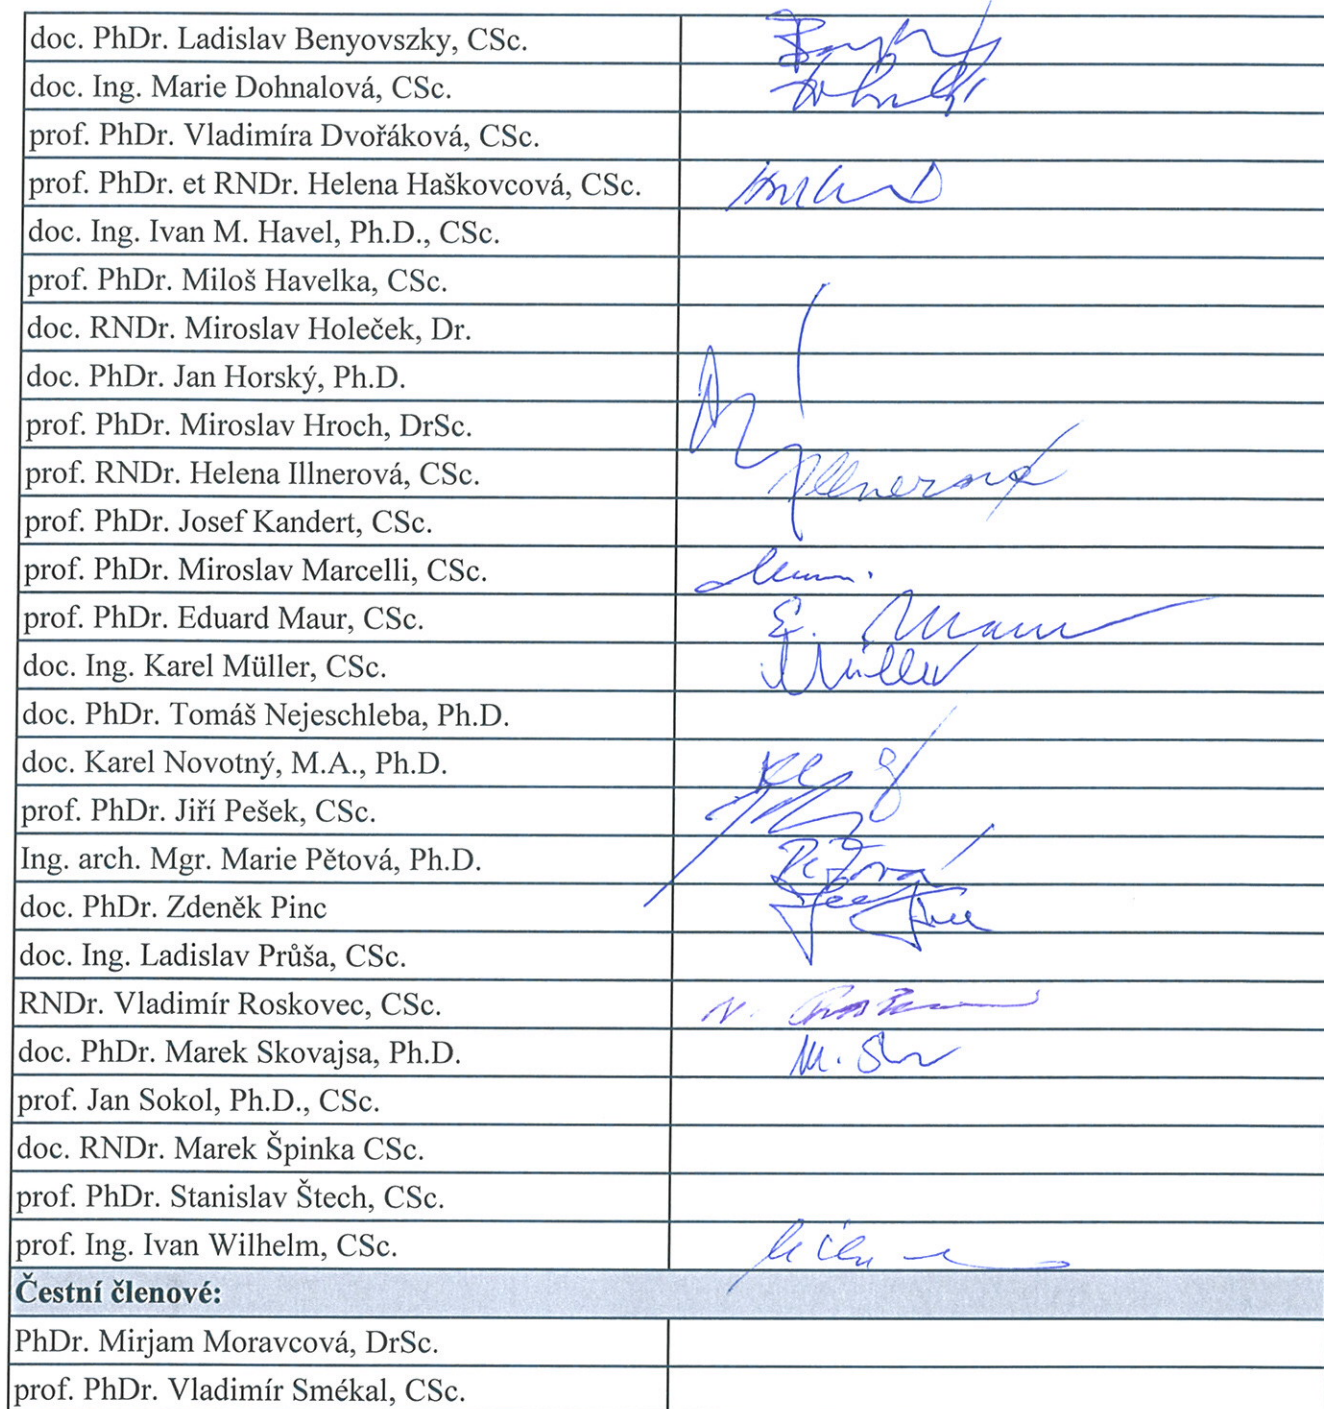 doc. PhDr. Ladislav Benyovszky, CSc.
doc. Ing. Marie Dohnalová, CSc.
prof. PhDr. Vladimíra Dvořáková, CSc.
prof. PhDr. et RNDr. Helena Haškovcová, CSc.
doc. Ing. Ivan M. Havel, Ph.D., CSc.
prof. PhDr. Miloš Havelka, CSc.
doc. RNDr. Miroslav Holeček, Dr.
doc. PhDr. Jan Horský, Ph.D.
prof. PhDr. Miroslav Hroch, DrSc.
prof. RNDr. Helena Illnerová, CSc. Illnerová
prof. PhDr. Josef Kandert, CSc.
prof. PhDr. Miroslav Marcelli, CSc.
prof. PhDr. Eduard Maur, CSc. E. Maur
doc. Ing. Karel Müller, CSc. Müller
doc. PhDr. Tomáš Nejeschleba, Ph.D.
doc. Karel Novotný, M.A., Ph.D.
prof. PhDr. Jiří Pešek, CSc.
Ing. arch. Mgr. Marie Pětová, Ph.D. Pětová
doc. PhDr. Zdeněk Pinc
doc. Ing. Ladislav Průša, CSc.
RNDr. Vladimír Roskovec, CSc.
doc. PhDr. Marek Skovajsa, Ph.D.
prof. Jan Sokol, Ph.D., CSc.
doc. RNDr. Marek Špinka CSc.
prof. PhDr. Stanislav Štech, CSc.
prof. Ing. Ivan Wilhelm, CSc.
Čestní členové:
PhDr. Mirjam Moravcová, DrSc.
prof. PhDr. Vladimír Smékal, CSc.